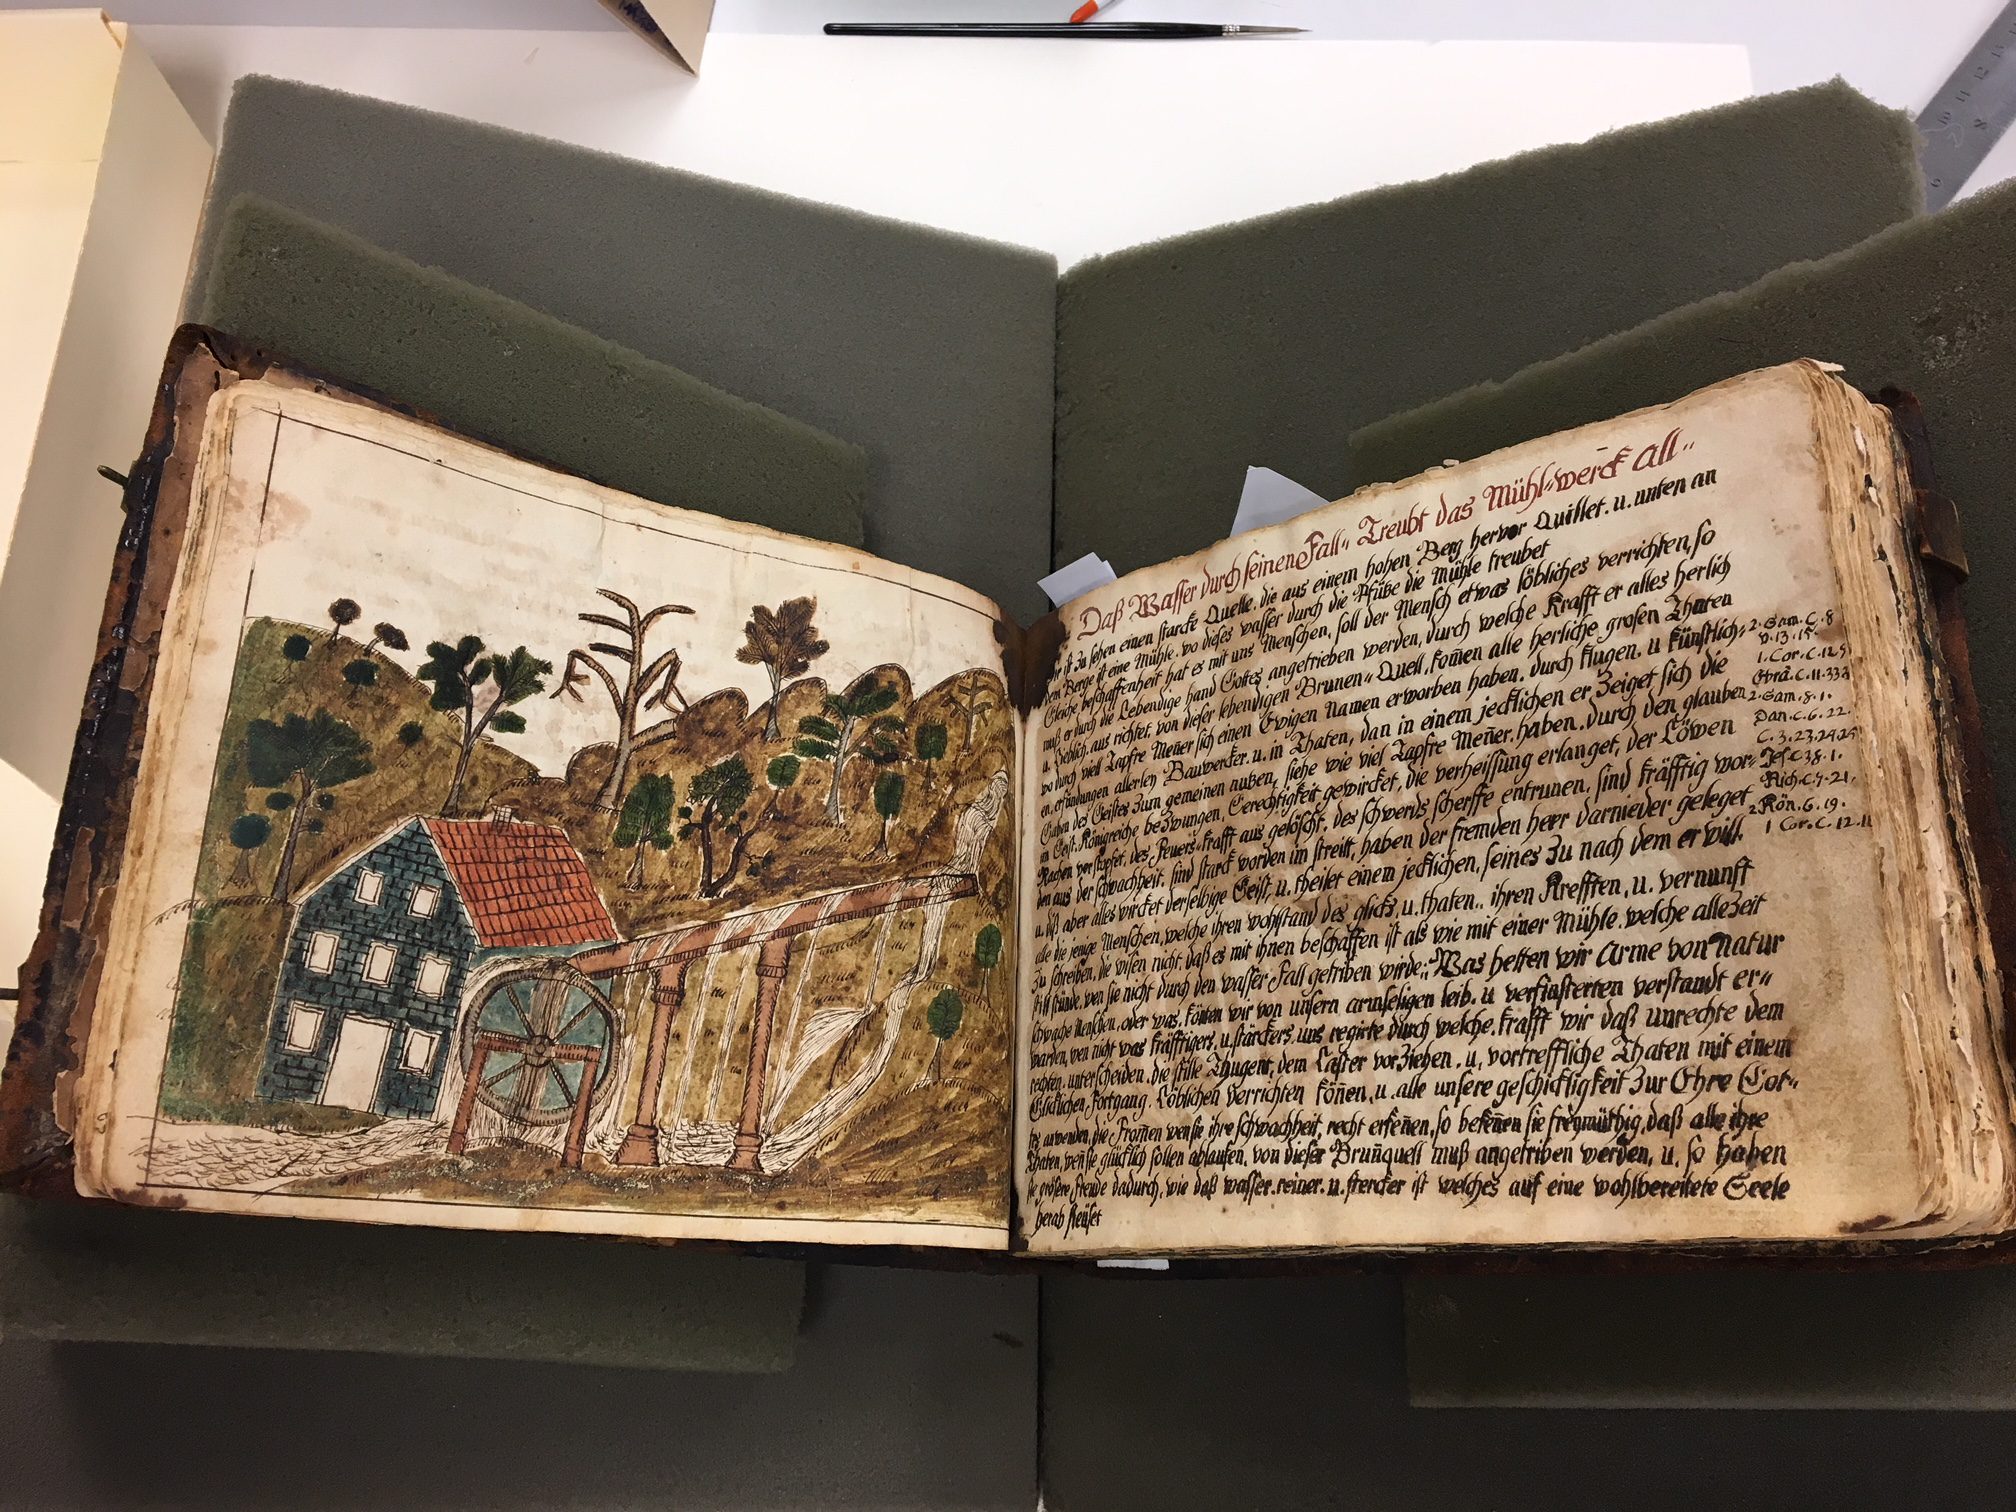 Daß Wasser durch seinen Fall„ Treubt das Mühl„werck all„
ist zu sehen einen starcke Quelle, die aus einem hohen Berg hervor Quillet. u. unten an
dem Berge ist eine Mühle. wo dieses wasser durch die Pfütze die Mühle treubet
Gleiche beschaffenheit hat es mit uns Menschen, soll der Mensch etwas löbliches verrichten, so
muß er durch die Lebendige hand Gotes angetrieben werden, durch welche Krafft er alles herlich
u. Lieblich aus richtet, von dieser lebendigen Brunen„Quell, kom̄en alle herliche grosen Thaten
wo durch viell Tapfre Mener sich einen Ewigen Namen erworben haben. durch klugen, u künstlich„
en, erfündungen allerley Bauwercker. u. in Thaten, dan in einem jecklichen er Zeiget sich die
Gaben des Geistes zum gemeinen nutzen, siehe wie viel Tapfre Mener. haben. durch den glauben
im Geist. Königreiche bezwungen, Gerechtigkeit gewircket, die verheissung erlanget, der Löwen
Rachen verstopfet, des Feuers krafft aus gelöscht, des schwerds scherffe entrunen, sind kräfftig wor„
den aus der schwachheit. sind starck worden im streitt, haben der fremden heer darnieder geleget
u. diß aber alles wircket derselbige Geist, u. theilet einem jecklichen, seines zu nach dem er will.
alle die jenige Menschen, welche ihren wohlstand des glicks, u. thaten.. ihren Krefften, u. vernunft
zu schreiben, die wisen nicht, daß es mit ihnen beschaffen ist als wie mit einer Mühle. welche allezeit
still stünde, wen sie nicht durch den wasser Fall getriben wirde; Was hetten wir Arme von natur
schwache Menschen, oder was, könten wir von unsern armseligen leib. u verfinsterten verstandt er„
warden, wen nicht was kräfftigers, u. stärckers, uns regirte durch welche, krafft wir daß unrechte dem
rechten unterscheiden. die stille Thugent, dem Laster vorziehen, u, vortreffliche Thaten mit einem
Glicklichen fortgang, Löblichen verrichten kön̄en, u. alle unsere geschickligkeit zur Ehre Got„
anwenden, die From̄en wen sie ihre schwachheit, recht erken̄en, so beken̄en sie freymüthig, daß alle ihre
Thaten, wen̄ sie glücklich sollen ablaufen, von dieser Brun̄quell muß angetriben werden, u, so haben
sie grösere freude dadurch, wie daß wasser. reiner. u. stercker ist welches auf eine wohlbereitete Seele
herab
2. Sam. C. 8
v. 13. 15.
1. Cor. C. 12
C. 11. 33
2. Sam. 8. 1.
Dan. C. 6. 22.
C. 3. 23. 24. 25
Jes. C 38. 1.
Rich. C. 7. 21.
2. Kön. 6. 19.
1 Cor. C. 12. 11